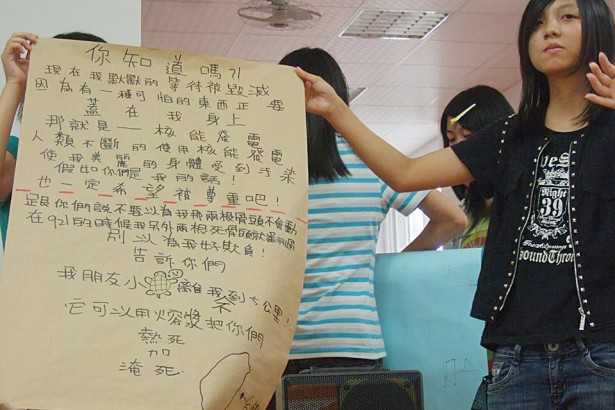 你知道嗎?!
現在我默默的等待被毀滅
因為有一種可怕的東西正要
蓋在我身上
那就是—核能發電
人類不斷的使用核能發電
使我美麗的身體受到汙染
假如你們是我的話!
也一定希望被尊重吧!
是跟你們說不要以為我那兩根骨頭不會動
在921的時候我另外兩根死骨頭
別以為我好欺負!
告訴你們
我朋友小 離我不到七公里!
它可以用熔漿把你們
熱死
加
淹死
Night
39